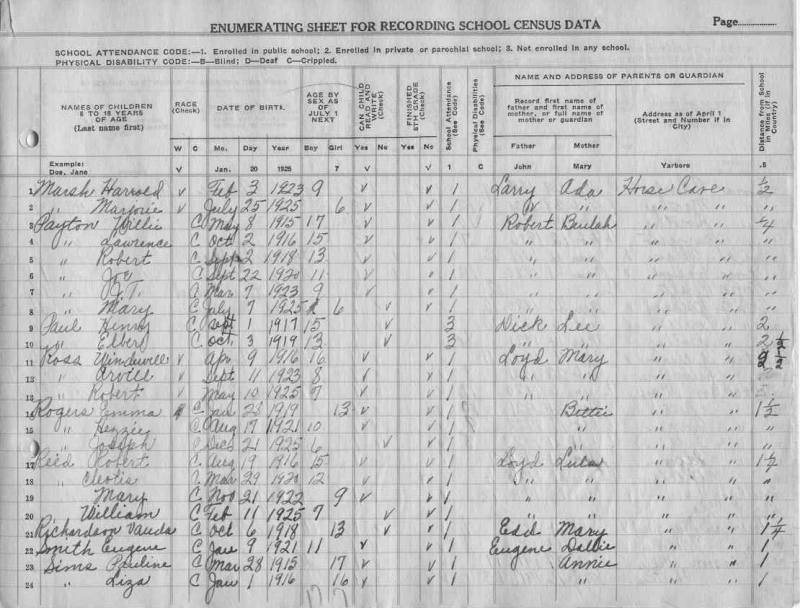 ENUMERATING SHEET FOR RECORDING SCHOOL CENSUS DATA Page
SCHOOL ATTENDANCE CODE:—1. Enrolled in public school; 2. Enrolled in private or parochial school; 3. Not enrolled in any school.
PHYSICAL DISABILITY CODE:—B—Blind; D—Deaf C—Crippled.
NAMES OF CHILDREN 6 TO 18 YEARS OF AGE (Last name first) RACE (Check) DATE OF BIRTH. AGE BY SEX AS OF JULY 1 NEXT CAN CHILD READ AND WRITE (Check) FINISHED 8TH GRADE (Check) School Attendance (See Code) Physical Disabilities (See Code) NAME AND ADDRESS OF PARENTS OR GUARDIAN Distance from School in Miles (if in Country)
Record first name of father and first name of mother, or full name of mother or guardian Address as of April 1 (Street and Number if in City)
W C Mo. Day Year Boy Girl Yes No Yes No Father Mother
Example: Doe, Jane V Jan. 20 1925 7 V V 1 C John Mary Yarbors .5
1 Marsh Harrold v Feb 3 1923 9 v v 1 Larry Ada Horse Cave 1/2
2 " Marjorie v July 25 1925 6 v v 1 " " " " "
3 Payton Willie C May 8 1915 17 v v 1 Robert Beulah " " 1/4
4 " Lawrence C Oct 2 1916 15 v v 1 " " " " "
5 " Robert C Sept 2 1918 13 v v 1 " " " " "
6 " Joe C Sept 22 1920 11 v v 1 " " " " "
7 " Mar 7 1923 9 v v 1 " " " " "
8 " Mary C July 7 1925 6 v v 1 " " " " "
9 Paul Henry C Sept 1 1917 15 v v 3 Dick Lee " " 2
10 " Elbert C Oct 3 1919 13 v v 3 " " " " 2
11 Ross Windwell v Apr 9 1916 16 v v 1 Loyd Mary " " 2 1/2
12 " Orvill v Sept 11 1923 8 v v 1 " " " "
13 " Robert v May 10 1925 7 v v 1 " " " "
14 Rogers Emma C Jan 28 1919 13 v v 1 Bettie " " 1 1/2
15 " C Aug 17 1921 10 v v 1 " " " "
16 " Joseph C Dec 21 1925 6 v v 1 " " " "
17 Reed Robert C Aug 9 1916 15 v v 1 Loyd Lula " "
18 " Cleotis C Mar 29 1920 12 v v 1 " " " " "
19 Mary C Nov 21 1922 9 v v 1 " " " " "
20 William C Feb 11 1925 7 v v 1 " " " " "
21 Richardson Vauda C Oct 6 1918 13 v v 1 Edd Mary " " 1 1/4
22 Smith Eugene C Jan 9 1921 11 v v 1 Eugene Dollie " " 1
23 Sims Pauline C Mar 28 1915 17 v v 1 Annie " " 1
24 " Liza C Jan 1 1916 16 v v 1 " " " 1